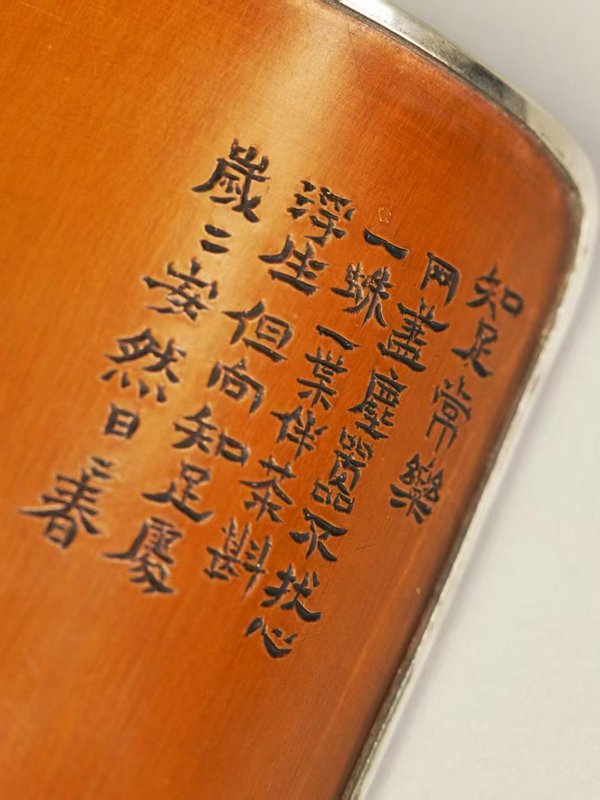 知足常樂
网盡塵囂不扰心
一蛛一葉伴茶斟
浮生但向知足處
歲二安然日二春